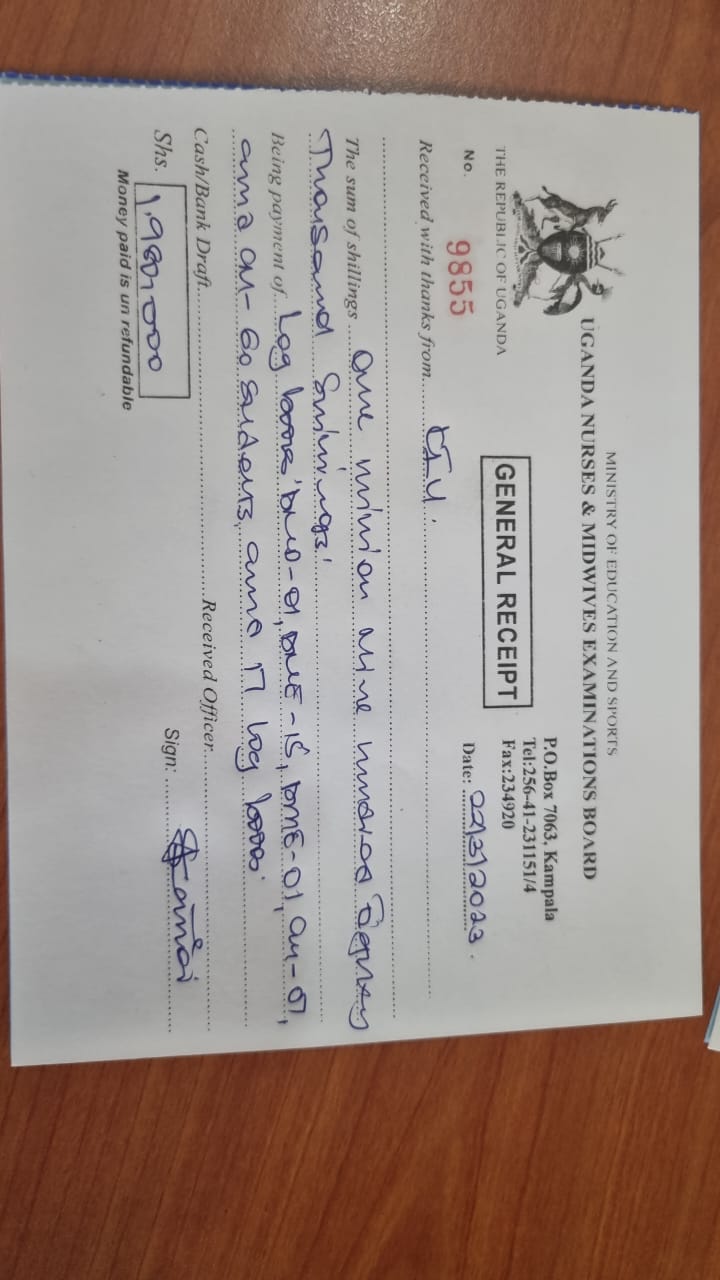 MINISTRY OF EDUCATION AND SPORTS
UGANDA NURSES & MIDWIVES EXAMINATIONS BOARD
THE REPUBLIC OF UGANDA
GENERAL RECEIPT
P.O.Box 7063, Kampala
Tel:256-41-231151/4
Fax:234920
No. 9855
Date: 22/3/2023.
Received with thanks from
The sum of shillings One million nine hundred Eighty
Thousand Shillings
Being payment of Log books
and 60 students, and 17 Log books
Cash/Bank Draft Received Officer
Shs. 1,980,000
Sign:
Money paid is un refundable